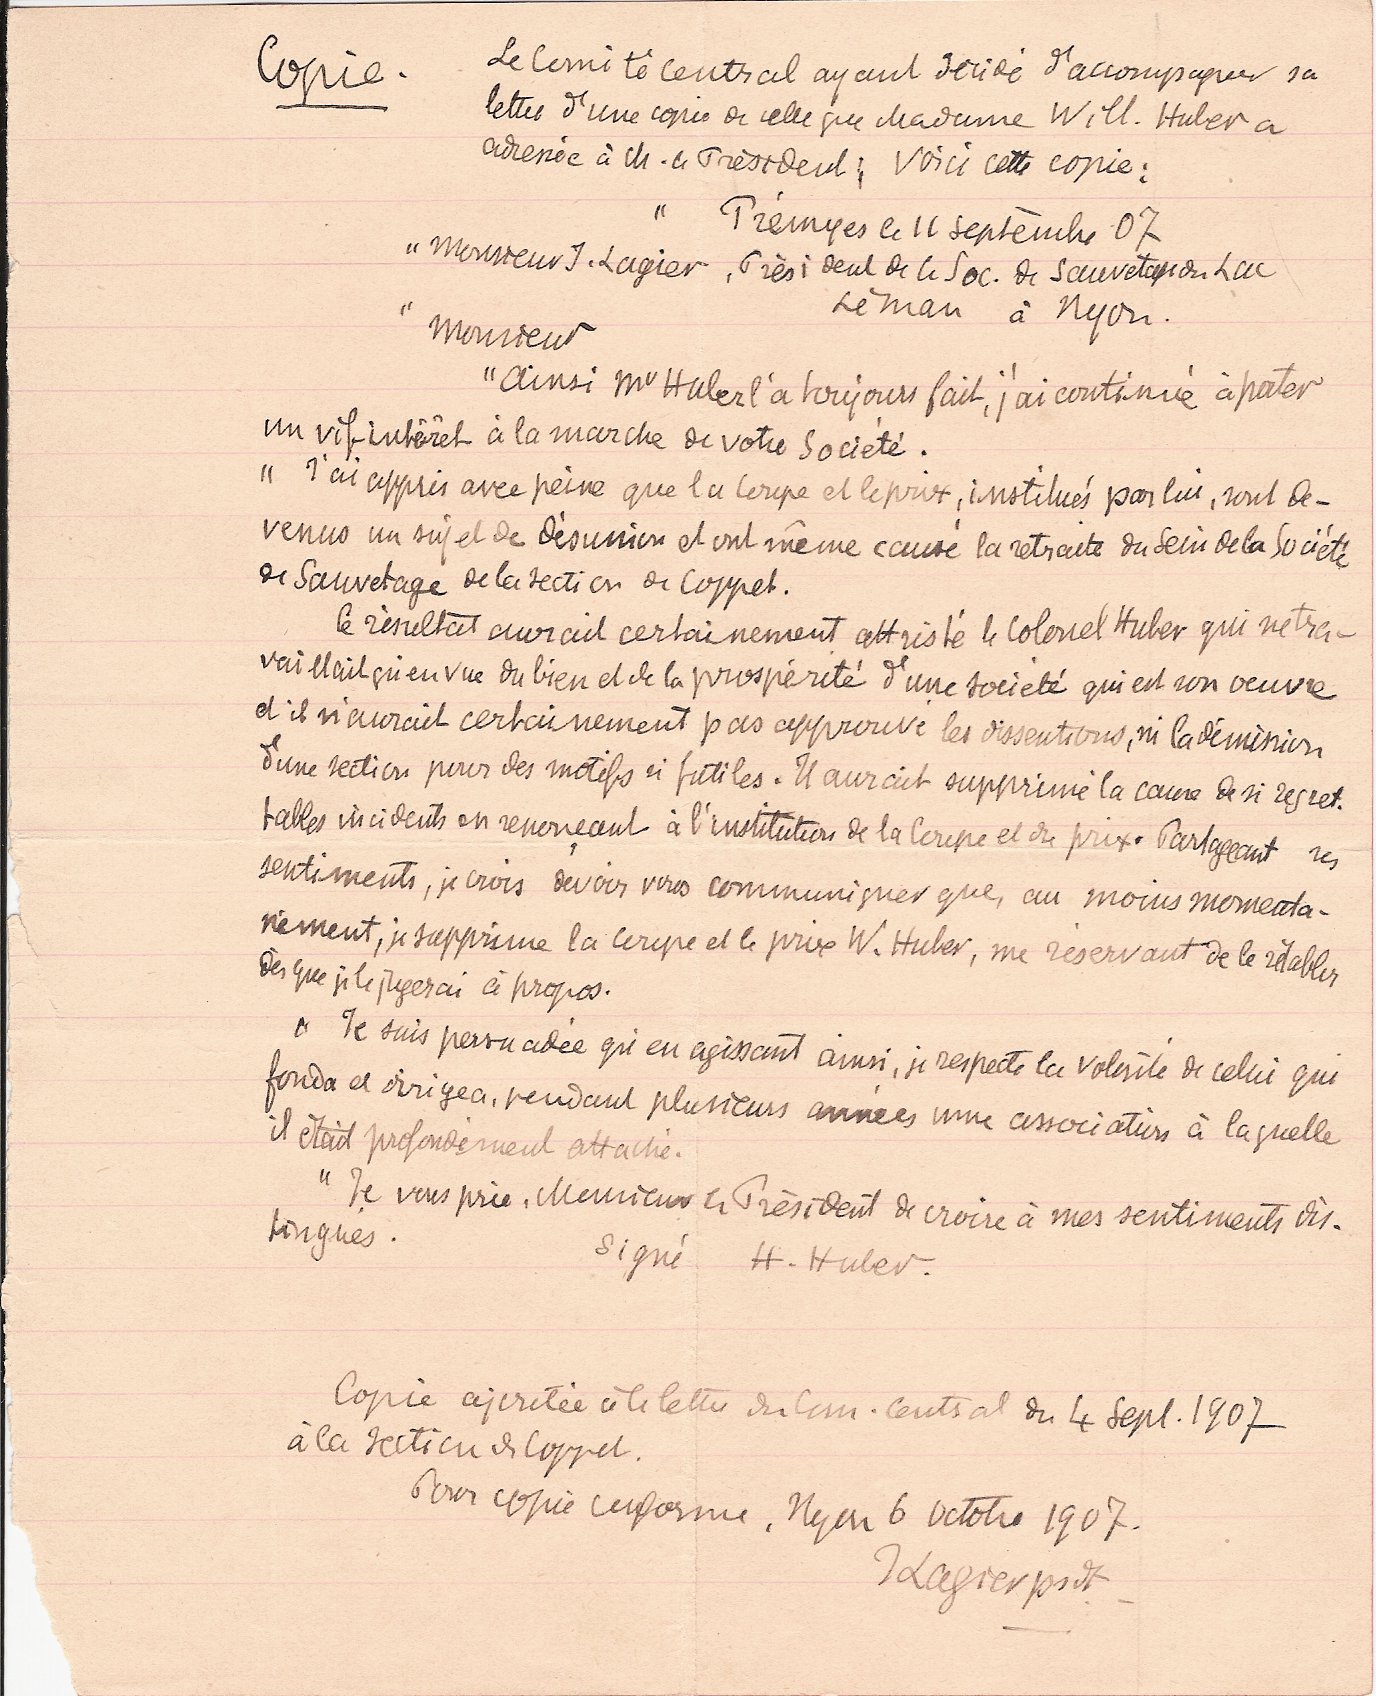 Copie.
Le Comité central ayant décidé d'accompagner sa
lettre d'une copie de celle que Madame Will. Huber a
adressée à M. le Président; Voici cette copie:
" Prémyes le 11 Septembre 07
" Monsieur J. Lagier, Président de la Soc. de Sauvetage du Lac
Léman à Nyon.
" Monsieur
" Ainsi Mr Huber l'a toujours fait, j'ai continué à porter
un vif intérêt à la marche de votre Société.
" J'ai appris avec peine que la Coupe et le prix, institués par lui, sont de-
venus un sujet de désunion et ont même causé la retraite du sein de la Société
de Sauvetage de la section de Coppet.
Ce résultat aurait certainement attristé le Colonel Huber qui ne tra-
vaillait qu'en vue du bien et de la prospérité d'une société qui est son oeuvre
et il n'aurait certainement pas approuvé les dissentions, ni la démission
d'une section pour des motifs si futiles. Il aurait supprimé la cause de si regret-
tables incidents en renonçant à l'institution de la Coupe et du prix. Partageant ses
sentiments, je crois devoir vous communiquer que, au moins momenta-
nément, je supprime la Coupe et le prix W. Huber, me réservant de le rétablir
dès que je le jugerai à propos.
" Je suis persuadée qu'en agissant ainsi, je respecte la volonté de celui qui
fonda et dirigea, pendant plusieurs années une association à laquelle
il était profondément attaché.
" Je vous prie, Monsieur le Président de croire à mes sentiments dis-
tingués.
Signé H. Huber.
Copie ajoutée à la lettre du Com. Central du 4 Sept. 1907
à la section de Coppet.
Pour copie conforme, Nyon 6 octobre 1907.
J Lagier psdt